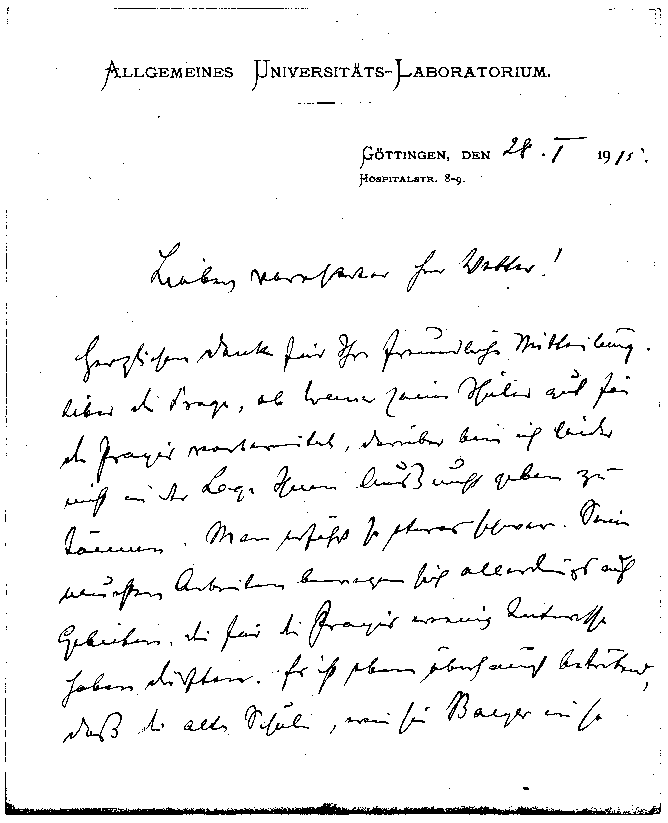 ALLGEMEINES UNIVERSITÄTS-LABORATORIUM.
GÖTTINGEN, DEN 28. I 1915.
HOSPITALSTR. 8-9.
Lieber verehrter Herr Vetter!
Herzlichen Dank für Ihre freundliche Mitteilung.
Über die Frage, ob Werner seine Schüler auch für
die Praxis vorbereitet, darüber bin ich leider
nicht in der Lage Ihnen Auskunft geben zu
können. Man erfährt so etwas schwer. Seine
neuesten Arbeiten bewegen sich allerdings auf
Gebieten, die für die Praxis wenig Interesse
haben dürften. Es ist eben überhaupt betrübend,
daß die alte Schule, wie sie Baeyer in so